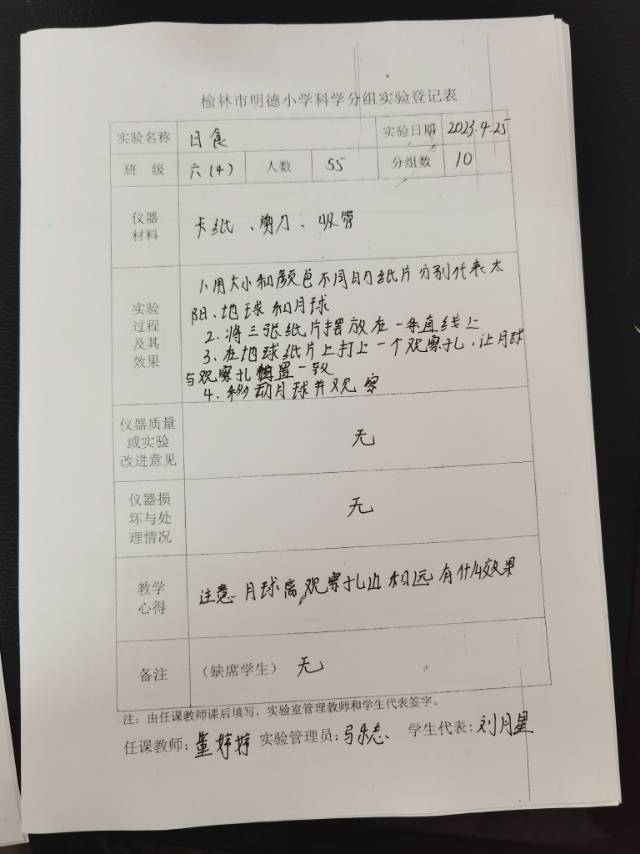 榆林市明德小学科学分组实验登记表
实验名称 日食 实验日期 2023.4.25
班 级 六(4) 人数 55 分组数 10
仪器
材料
卡纸、剪刀、吸管
实验
过程
及其
效果
1.用大小和颜色不同的纸片分别代表太
阳、地球和月球
2.将三张纸片摆放在一条直线上
3.在地球纸片上打上一个观察孔,让月球
与观察孔位置一致
4.移动月球并观察
仪器质量
或实验
改进意见
无
仪器损
坏与处
理情况
无
教学
心得
注意月球离观察孔近和远有什么效果
备注 (缺席学生) 无
注:由任课教师课后填写,实验室管理教师和学生代表签字。
任课教师:董婷婷 实验管理员:马乐志 学生代表:刘月星